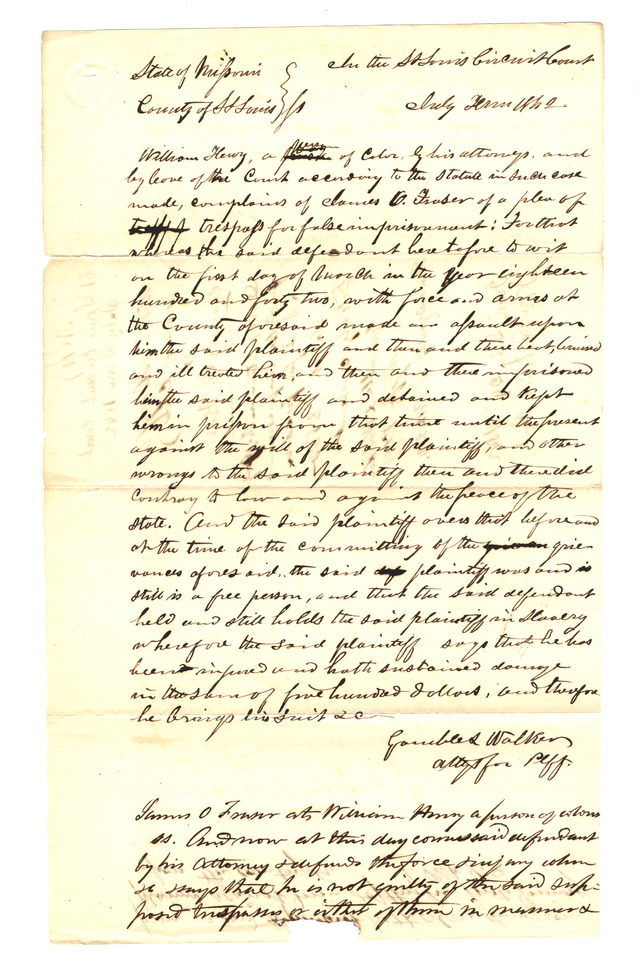 State of Missouri } In the St Louis Circuit Court
County of St Louis } ss July Term 1842
William Henry, a man of color, by his attorneys, and
by leave of the Court according to the statute in such case
made, complains of James O. Fraser of a plea of
trespass for false imprisonment: For that
whereas the said defendant heretofore to wit
on the first day of March in the year eighteen
hundred and forty two, with force and arms at
the County aforesaid made an assault upon
him the said plaintiff and then and there beat, bruised
and ill treated him, and then and there imprisoned
him the said plaintiff and detained and kept
him in prison from that time until the present
against the will of the said plaintiff, and other
wrongs to the said plaintiff then and there did
contrary to law and against the peace of the
state. And the said plaintiff avers that before and
at the time of the committing of the grie-
vances aforesaid, the said plaintiff was and is
still is a free person, and that the said defendant
held and still holds the said plaintiff in Slavery
wherefore the said plaintiff says that he has
been injured and hath sustained damage
in the sum of five hundred dollars; and therefore
he brings his suit &c
Gamble & Walker
attys for Plff.
James O Fraser ats William Henry a person of colour
ss. And now at this day comes said defendant
by his attorney & defends the force & injury when
&c. says that he is not guilty of the said sup-
posed trespasses or either of them in manner &